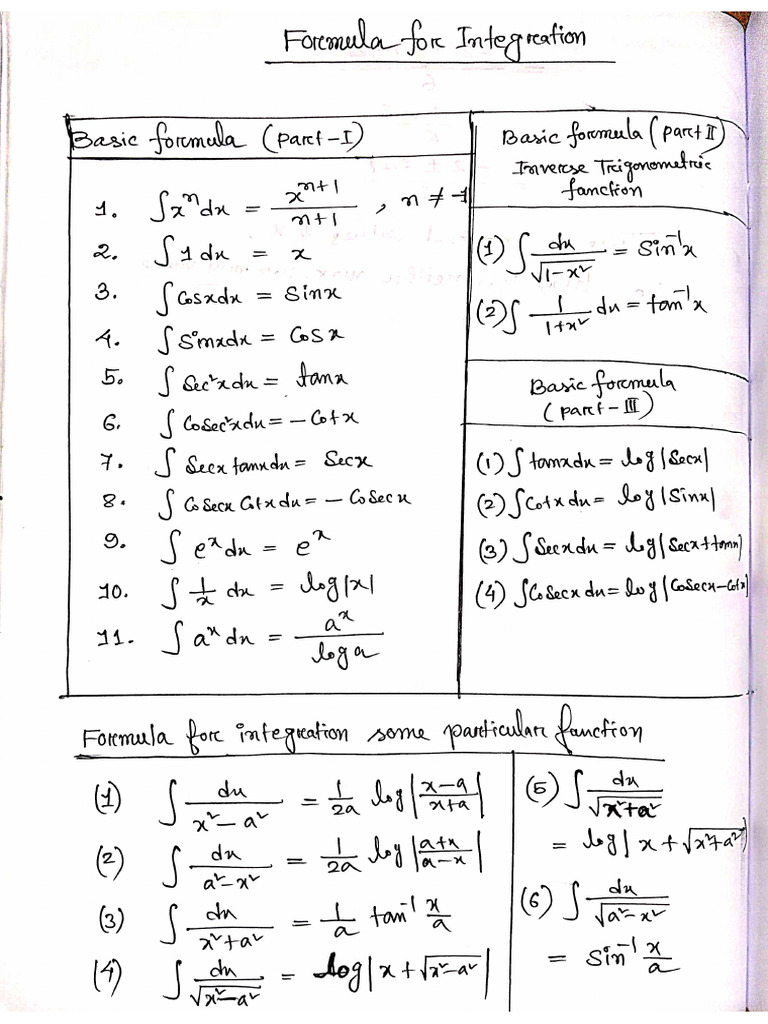 Formula for Integration
Basic formula (part-I)
1. ∫xⁿdx = xⁿ⁺¹/n+1 , n ≠ -1
2. ∫1 dx = x
3. ∫Cosxdx = Sinx
4. ∫Sinxdx = Cosx
5. ∫Sec²xdx = tanx
6. ∫Cosec²xdx = -Cotx
7. ∫Secx tanxdx = Secx
8. ∫Cosecx Cotxdx = -Cosecx
9. ∫eˣdx = eˣ
10. ∫1/x dx = log|x|
11. ∫aˣdx = aˣ/log a
Basic formula (part II)
Inverse Trigonometric
function
(1) ∫dx/√1-x² = Sin⁻¹x
(2) ∫1/1+x² dx = tan⁻¹x
Basic formula
(part-III)
(1) ∫tanxdx = log|Secx|
(2) ∫Cotxdx = log|Sinx|
(3) ∫Secxdx = log|Secx+tanx|
(4) ∫Cosecxdx = log|Cosecx-Cotx|
Formula for integration some particular function
(1) ∫dx/x²-a² = 1/2a log|x-a/x+a|
(2) ∫dx/a²-x² = 1/2a log|a+x/a-x|
(3) ∫dx/x²+a² = 1/a tan⁻¹ x/a
(4) ∫dx/√x²-a² = log|x+√x²-a²|
(5) ∫dx/√x²+a²
= log|x+√x²+a²|
(6) ∫dx/√a²-x²
= Sin⁻¹ x/a